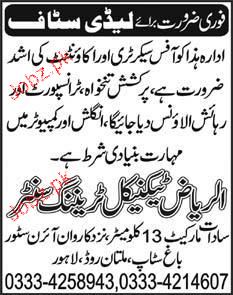 فوری ضرورت برائے لیڈی سٹاف
ادارہ ہذا کو آفس سیکرٹری اور اکاؤنٹینٹ کی اشد
ضرورت ہے، پرکشش تنخواہ، ٹرانسپورٹ اور
رہائش الاؤنس دیا جائیگا، انگلش اور کمپیوٹر میں
مہارت بنیادی شرط ہے۔
الریاض ٹیکنیکل ٹریننگ سنٹر
سادات مارکیٹ 13 کلومیٹر، نزد کاروان آئرن سٹور
باغ سٹاپ، ملتان روڈ، لاہور
0333-4258943,0333-4214607